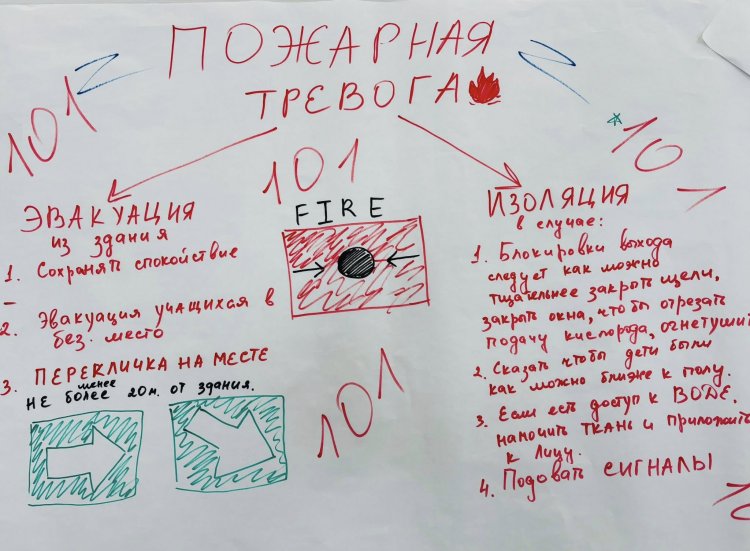 ПОЖАРНАЯ
ТРЕВОГА
101
101
*101
ЭВАКУАЦИЯ
из здания
1. Сохранять спокойствие
–
2. Эвакуация учащихся в
без. место
3. ПЕРЕКЛИЧКА НА МЕСТЕ
менее
НЕ более 20м. от здания.
FIRE
101
ИЗОЛЯЦИЯ
в случае:
1. Блокировки выхода
следует как можно
тщательнее закрыть щели,
закрыть окна, что бы отрезать
подачу кислорода, огнетушит
2. Сказать чтобы дети были
как можно ближе к полу.
3. Если есть доступ к ВОДЕ,
намочить ткань и приложить
к лицу.
4. Подовать СИГНАЛЫ
10